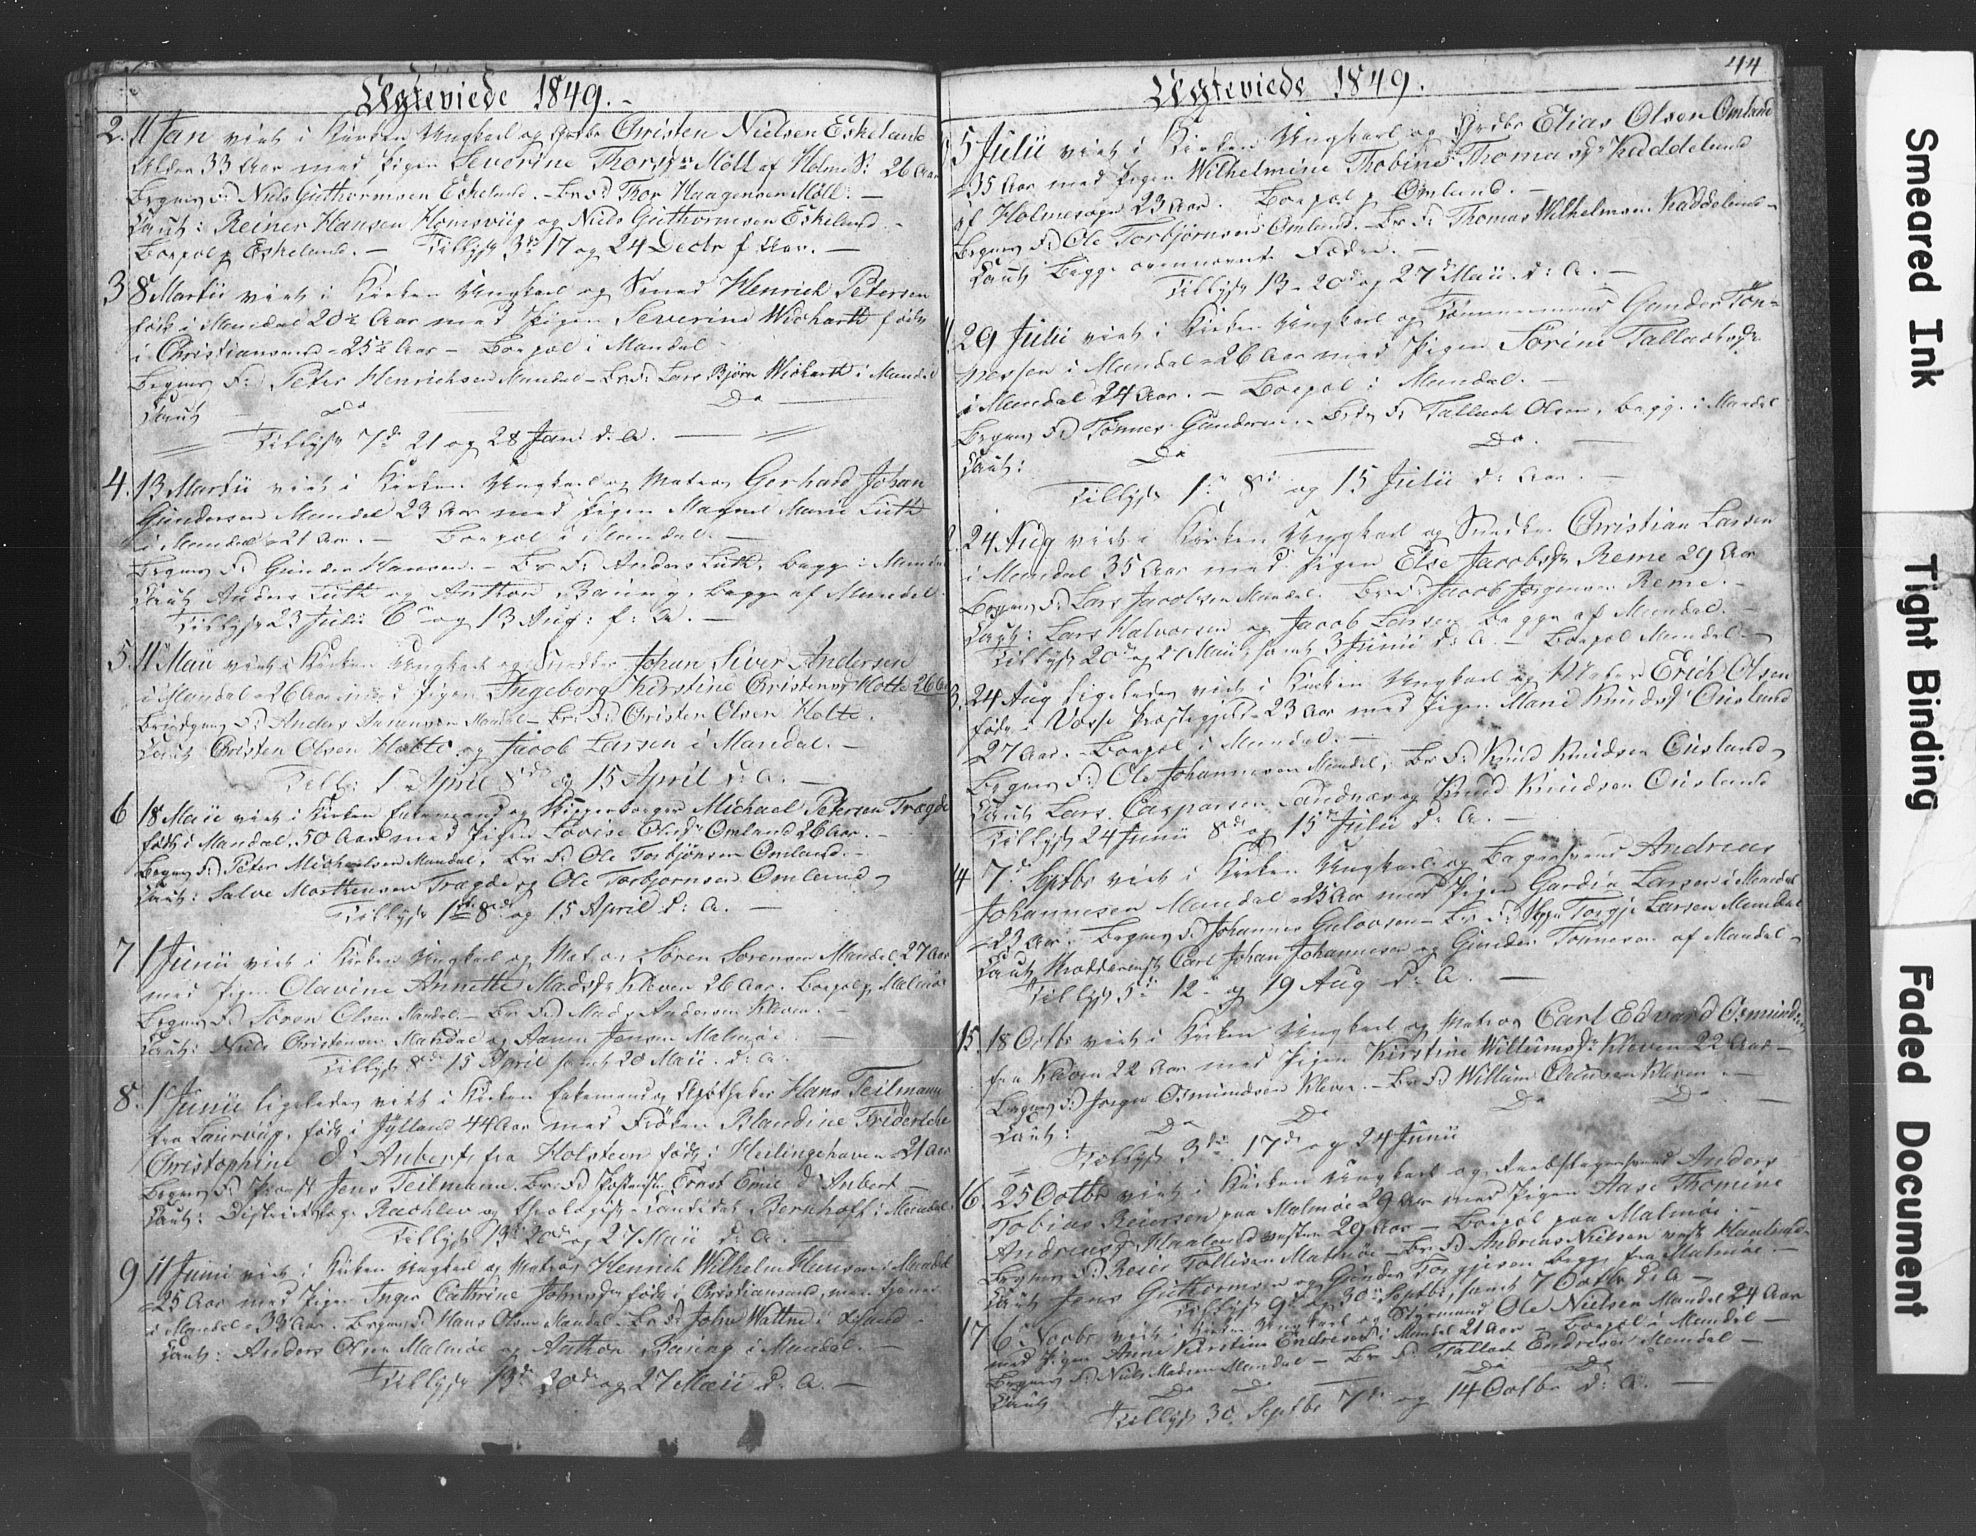 Ægteviede 1849.
2. 11 Jan viet i Kirken Ungkarl og Christen Nielsen Eskeland
Alder 33 Aar med Pigen Severine Thorsdr Möll af Holme S: 26 Aar
Brgms F: Niels Guthormsen Eskeland. Br F: Thor Haagensen Möll. —
Caut: Reiner Hansen Homsviig og Niels Guthormsen Eskeland. —
Boepæl p Eskeland. — Tillyst 3die 17 og 24 Decbr f Aar. —
3 8 Martii viet i Kirken Ungkarl og Smed Henrich Petersen
født i Mandal 20½ Aar med Pigen Severine Wichardt født
i Christiansand 25½ Aar — Boepæl i Mandal
Brgms F: Peter Henrichsen Mandal — Br F: Lars Bjørn Wichardt i Mandal
Caut — Do — Do —
Tillyst 7d 21 og 28 Jan d: A. —
4. 13 Martii viet i Kirken Ungkarl og Matros Gerhard Johan
Gundersen Mandal 23 Aar med Pigen Marie Luth
i Mandal 21 Aar. — Boepæl i Mandal. —
Brgms F: Gunder Hansen. — Br F: Anders Luth, begge i Mandal
Caut Anders Luth og Anthon Baring, begge af Mandal.
Tillyst 23 Julii 6te og 13 Aug: f: A. —
5. 11 Maii viet i Kirken Ungkarl og Snedker Johan Siver Andersen
i Mandal 26 Aar med Pigen Ingeborg Kirstine Christensd Holte 26 Aar
Brudgms F: Anders Mandal — Br: F: Christen Olsen Holte.
Caut Christen Olsen Holte og Jacob Larsen i Mandal. —
Tilly: 1 April 8de og 15 April d: A. —
6 18 Maii viet i Kirken Enkemand og Michael Petersen Trægde
født i Mandal, 50 Aar med Pigen Lovise Olsdr Omland 26 Aar. —
Brgms F: Peter Michaelsen Mandal, Br F: Ole Torbjönsen Omland. —
Caut: Salve Morthensen Trægde og Ole Torbjornsen Omland
Tillyst 1ste 8de og 15 April d: A. —
7 1 Junii viet i Kirken Ungkarl og Matros Søren Sørensen Mandal 27 Aar
med Pigen Olavine Annette Madsdr Kleven 26 Aar. Boepæl p Malmøe
Brgms F: Søren Olsen Mandal. — Br F: Mads Andersen Kleven. —
Caut: Niels Christensen Mandal og Aanen Jensen Malmøe. —
Tillyst 8de 15 April samt 20 Maii d: A. —
8. 1 Junii ligeledes viet i Kirken Enkemand og Apotheker Hans Teilmann
fra Laurvig, født i Jylland 44 Aar med Frøken Blandine Frideriche
Christophine d' Aubert, fra Holsteen født i Heilingehaven 21 Aar
Brgms F: Provst Jens Teilmann. Br F: Ernst Emil d' Aubert —
Caut: Districtslæge Rachlew og Theologisk Candidat Bernhoft i Mandal.
Tillyst 13de 20de og 27 Maii d: A. —
9 11 Junii viet i Kirken Ungkarl og Matros Henrich Wilhelm Hansen i Mandal
25 Aar med Pigen Inger Cathrine Johnsdr født i Christiansand, men tjener
i Mandal 33 Aar. Brgms F: Hans Olsen Mandal. Br F: John Wattne i
Caut: Anders Olsen Malmøe og Anthon Baring i Mandal. —
Tillyst 13de 20de og 27 Maii d. A. —
44
Ægteviede 1849.
5 Julii viet i Kirken Ungkarl og Elias Olsen Omland
35 Aar med Pigen Wilhelmine Thobine Thomasdr Kaddeland
af Holme Sogn 23 Aar. Boepæl p Omland. —
Brgms F: Ole Torbjørnsen Omland. Br F: Thomas Wilhelmsen Kaddeland —
Caut Begge ovennevnte Fædre. —
Tillyst 13 20de og 27de Maii d: A. —
29 Julii viet i Kirken Ungkarl og Tømmermand Gunder Tön-
nessen i Mandal 26 Aar med Pigen Sörine Tallachsdr
i Mandal 24 Aar. — Boepæl i Mandal. —
Brgms F: Tönnes Gundersen. — Brds F: Tallach Olsen, begge i Mandal
Caut: Do Do. —
Tillyst 1ste 8de og 15 Julii d: Aar. —
24 Aug viet i Kirken Ungkarl og Snedker Christian Larsen
i Mandal 35 Aar med Pigen Else Jacobsdr Reme 29 Aar
Brgms F: Lars Jacobsen Mandal. Br F: Jacob Jørgensen Reme. —
Caut: Lars Halvorsen og Jacob Larsen begge af Mandal. —
Tillyst 20de og 27 Maii, samt 3 Junii d: A. — Boepæl Mandal. —
24 Aug ligeledes viet i Kirken Ungkarl og Erich Olsen
født i Vosse Præstegjeld 23 Aar med Pigen Marie Knudsdr Ousland
27 Aar. Boepæl i Mandal. —
Brgms F: Ole Johannesen Mandal, Br F: Knud Knudsen Ousland
Caut Lars Caspersen Sandnæs og Knud Knudsen Ousland
Tillyst 24 Junii 8de og 15de Julii d: A. —
7de Septbr viet i Kirken Ungkarl og Bagersvend Andreas
Johannesen Mandal 25 Aar med Pigen Gurdia Larsen i Mandal
23 Aar. Brgms F: Johannes Gulovsen — Br F: Torgje Larsen Mandal
Caut Carl Johan Johannesen og Gunder Tönnesen af Mandal —
Tillyst 5te 12te og 19 Aug d: A. —
15. 18 Octbr viet i Kirken Ungkarl og Matros Carl Edvard Osmundsen
fra Kleven 22 Aar med Pigen Kirstine Willumsdr Kleven 22 Aar —
Brgms F: Jørgen Osmundsen Kleven. — Br F: Willum Clausen Kleven. —
Caut: Do Do Do Do —
Tillyst 3die 17de og 24 Junii
16. 25 Octbr viet i Kirken Ungkarl og Anders
Tobias Reiersen paa Malmøe 29 Aar med Pigen Aase Thomine
Andreasdr Haaland vesten 29 Aar — Boepæl paa Malmøe. —
Brgms F: Reier Tollisen Malmøe — Br F: Andreas Nielsen vest Haaland —
Caut Jens Guttormsen og Gunder Torgjesen begge fra Malmøe. —
Tillyst 9de og 30te Septbr, samt 7 Octbr d: A —
17 6 Novbr viet i Kirken Ungkarl og Styrmand Ole Nielsen Mandal 24 Aar
med Pigen Anne Kirstine Endresen i Mandal 21 Aar — Boepæl i Mandal —
Brgms F: Niels Madsen Mandal — Br F: Tallach Endresen Mandal —
Caut Do Do — Do Do
Tillyst 30 Septbr 7de og 14 Octbr d: A. —
Smeared Ink
Tight Binding
Faded Document